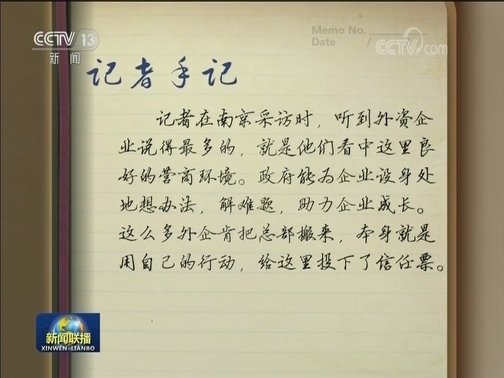 CCTV 13
新闻
Memo No.
Date /
CCTV.com
记者手记
记者在南京采访时，听到外资企
业说得最多的，就是他们看中这里良
好的营商环境。政府能为企业设身处
地想办法，解难题，助力企业成长。
这么多外企肯把总部搬来，本身就是
用自己的行动，给这里投下了信任票。
新闻联播
XINWEN LIANBO